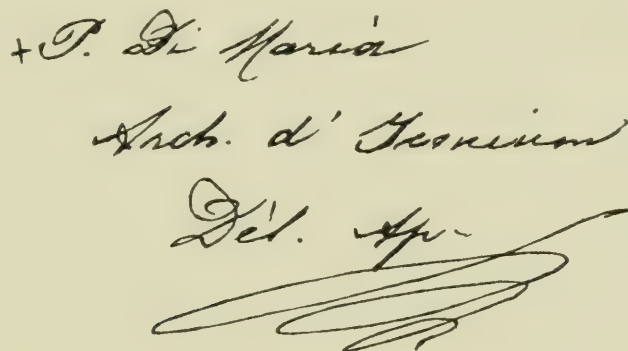 + P. Di Maria
Arch. d' Iconium
Dél. Ap.